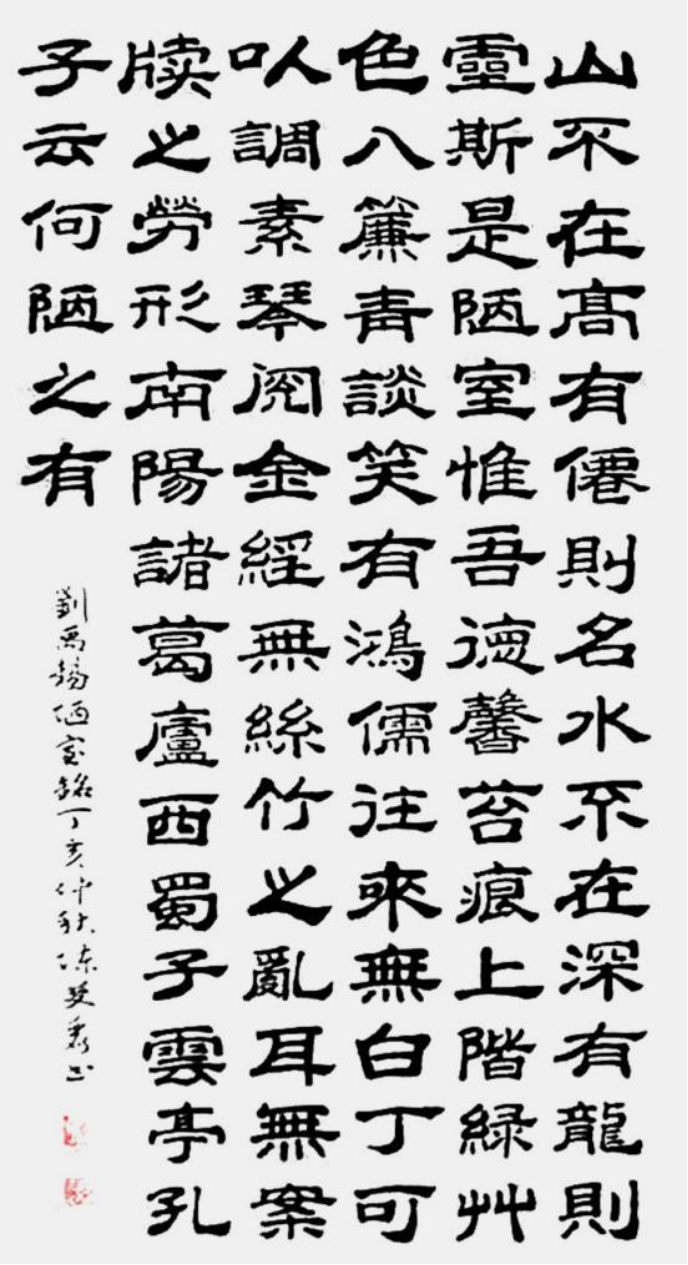 山不在高有僊則名水不在深有龍則
靈斯是陋室惟吾德馨苔痕上階緑艸
色入簾青談笑有鴻儒往來無白丁可
以調素琴閲金經無絲竹之亂耳無案
牍之勞形南陽諸葛廬西蜀子雲亭孔
子云何陋之有
劉禹錫陋室銘丁亥仲秋陈